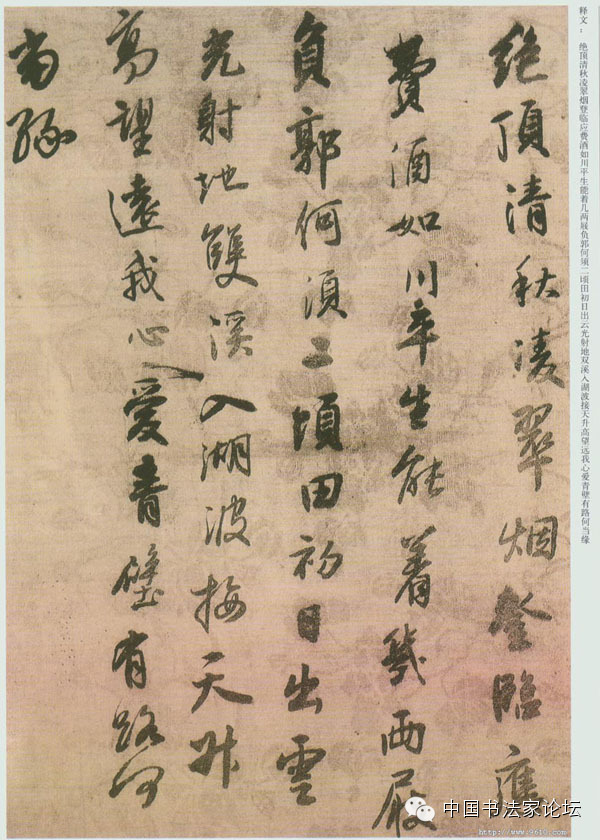 绝顶清秋凌翠烟登临应
費酒如川平生能着幾兩屐
負郭何須二頃田初日出雲
光射地雙溪入湖波接天升
高望遠我心愛青壁有路何
當緣
释文：
绝顶清秋凌翠烟登临应费酒如川平生能着几两屐负郭何须二顷田初日出云光射地双溪入湖波接天升高望远我心爱青壁有路何当缘
中国书法家论坛
http://www.9610.com